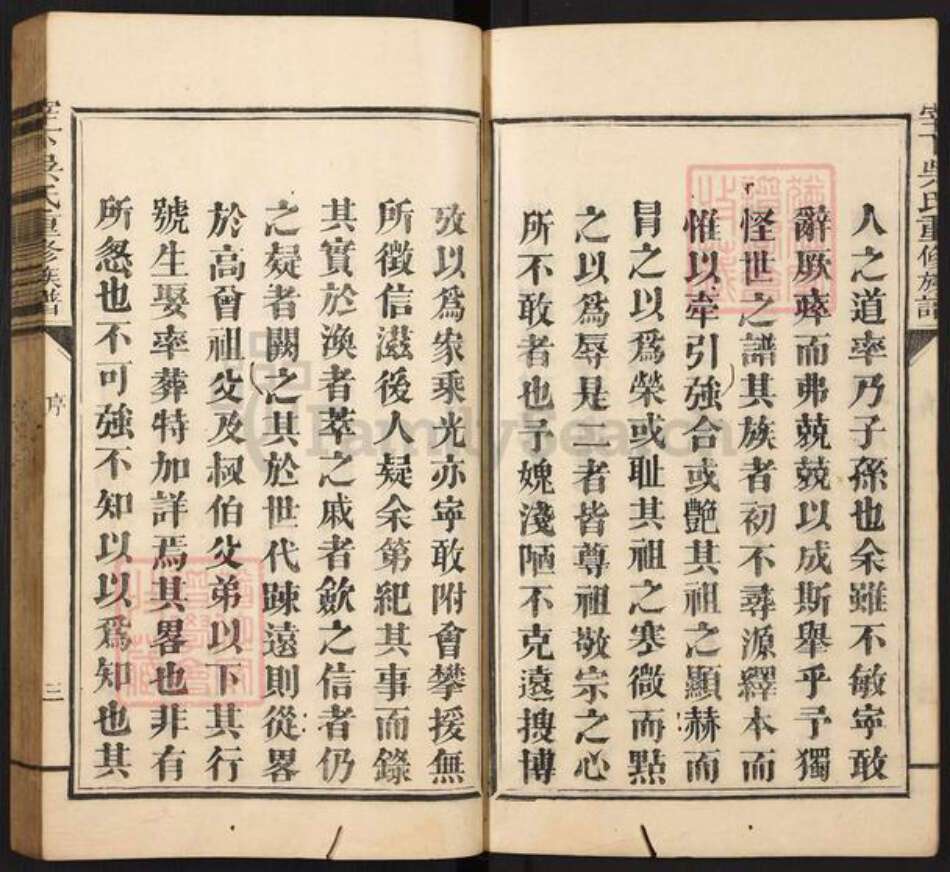 人之道率乃子孫也余雖不敏寧敢
辭厥瘁而弗兢兢以成斯舉乎予獨
怪世之譜其族者初不尋源繹本而
惟以牽引強合或艷其祖之顯赫而
冒之以爲榮或耻其祖之寒微而點
之以爲辱是二者皆尊祖敬宗之心
所不敢者也予媿淺陋不克遠搜博
攷以爲家乘光亦寧敢附會攀援無
所徵信滋後人疑余第紀其事而錄
其實於渙者萃之戚者歛之信者仍
之疑者闕之其於世代踈遠則從畧
於高曾祖父及叔伯父弟以下其行
號生娶率葬特加詳焉其畧也非有
所忽也不可強不知以以爲知也其
吳氏重修族譜
序
三
FamilySearch